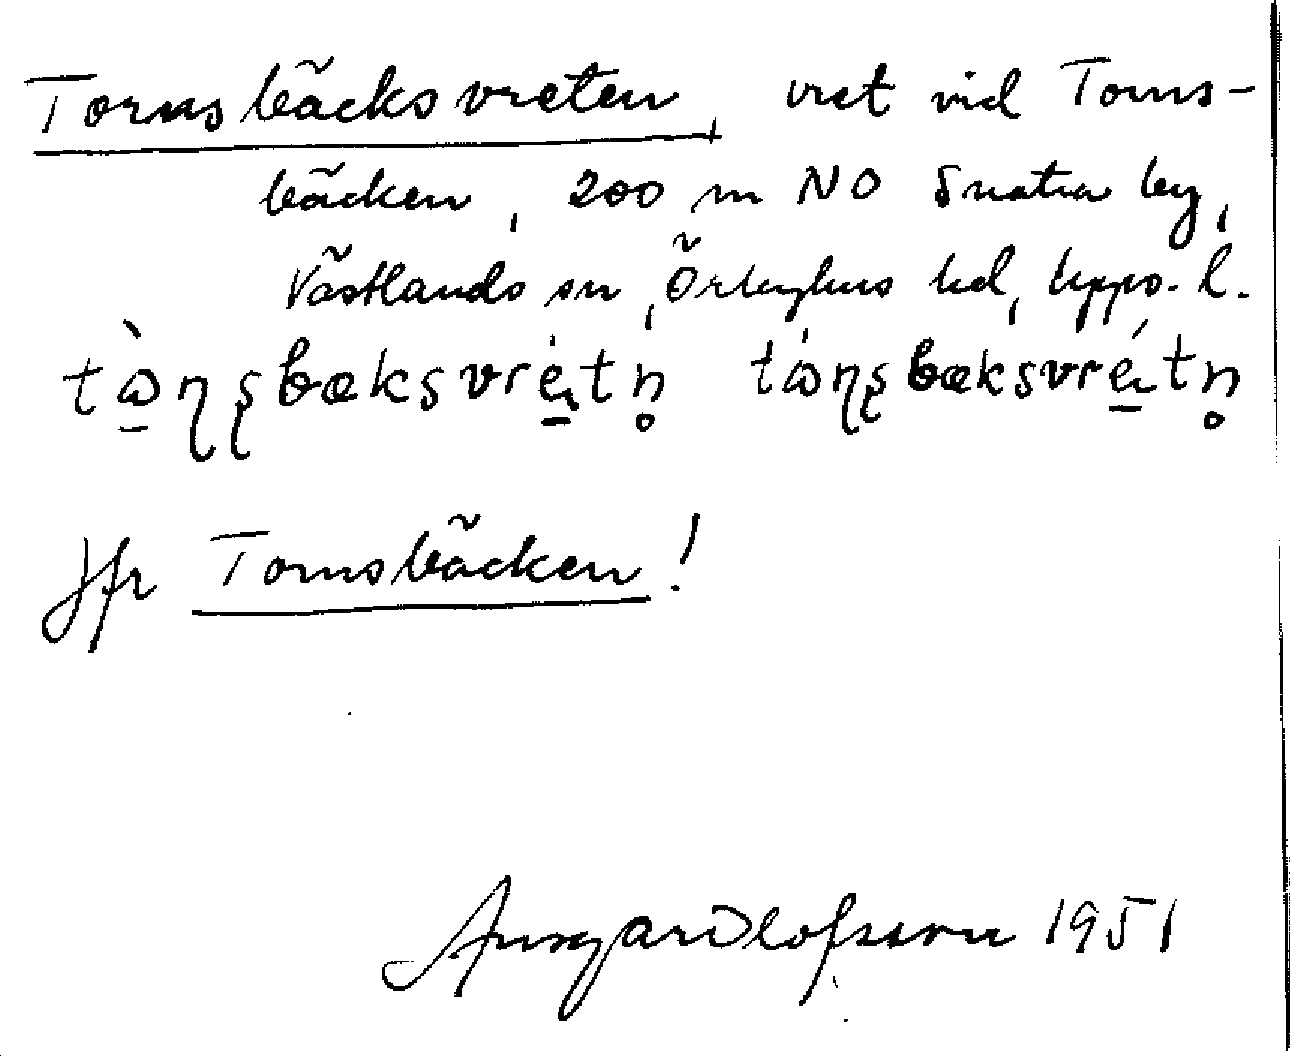 Tornsbäcksvreten, vret vid Torns-
bäcken, 200 m NO Snatra by,
Västlands sn, Örbyhus hd, Upps. l.
tɷ̀ɳʂbækʂvrétn̥ tɷ̀ɳʂbækʂvrétn̥
Jfr Tornsbäcken!
Ansgar Olofsson 1951